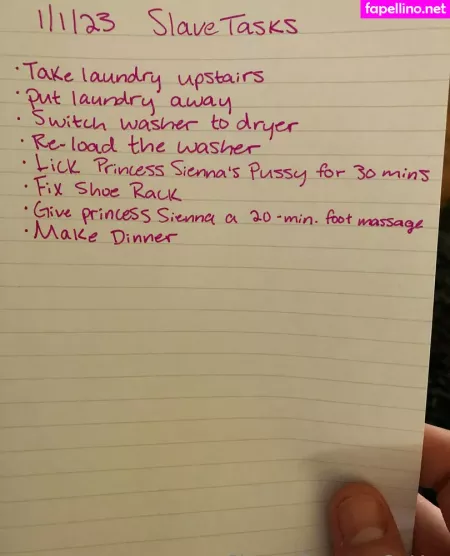 fapellino.net
1/1/23 Slave Tasks
· Take laundry upstairs
· Put laundry away
· Switch washer to dryer
· Re-load the washer
· Lick Princess Sienna's Pussy for 30 mins
· Fix Shoe Rack
· Give princess Sienna a 20-min. foot massage
· Make Dinner